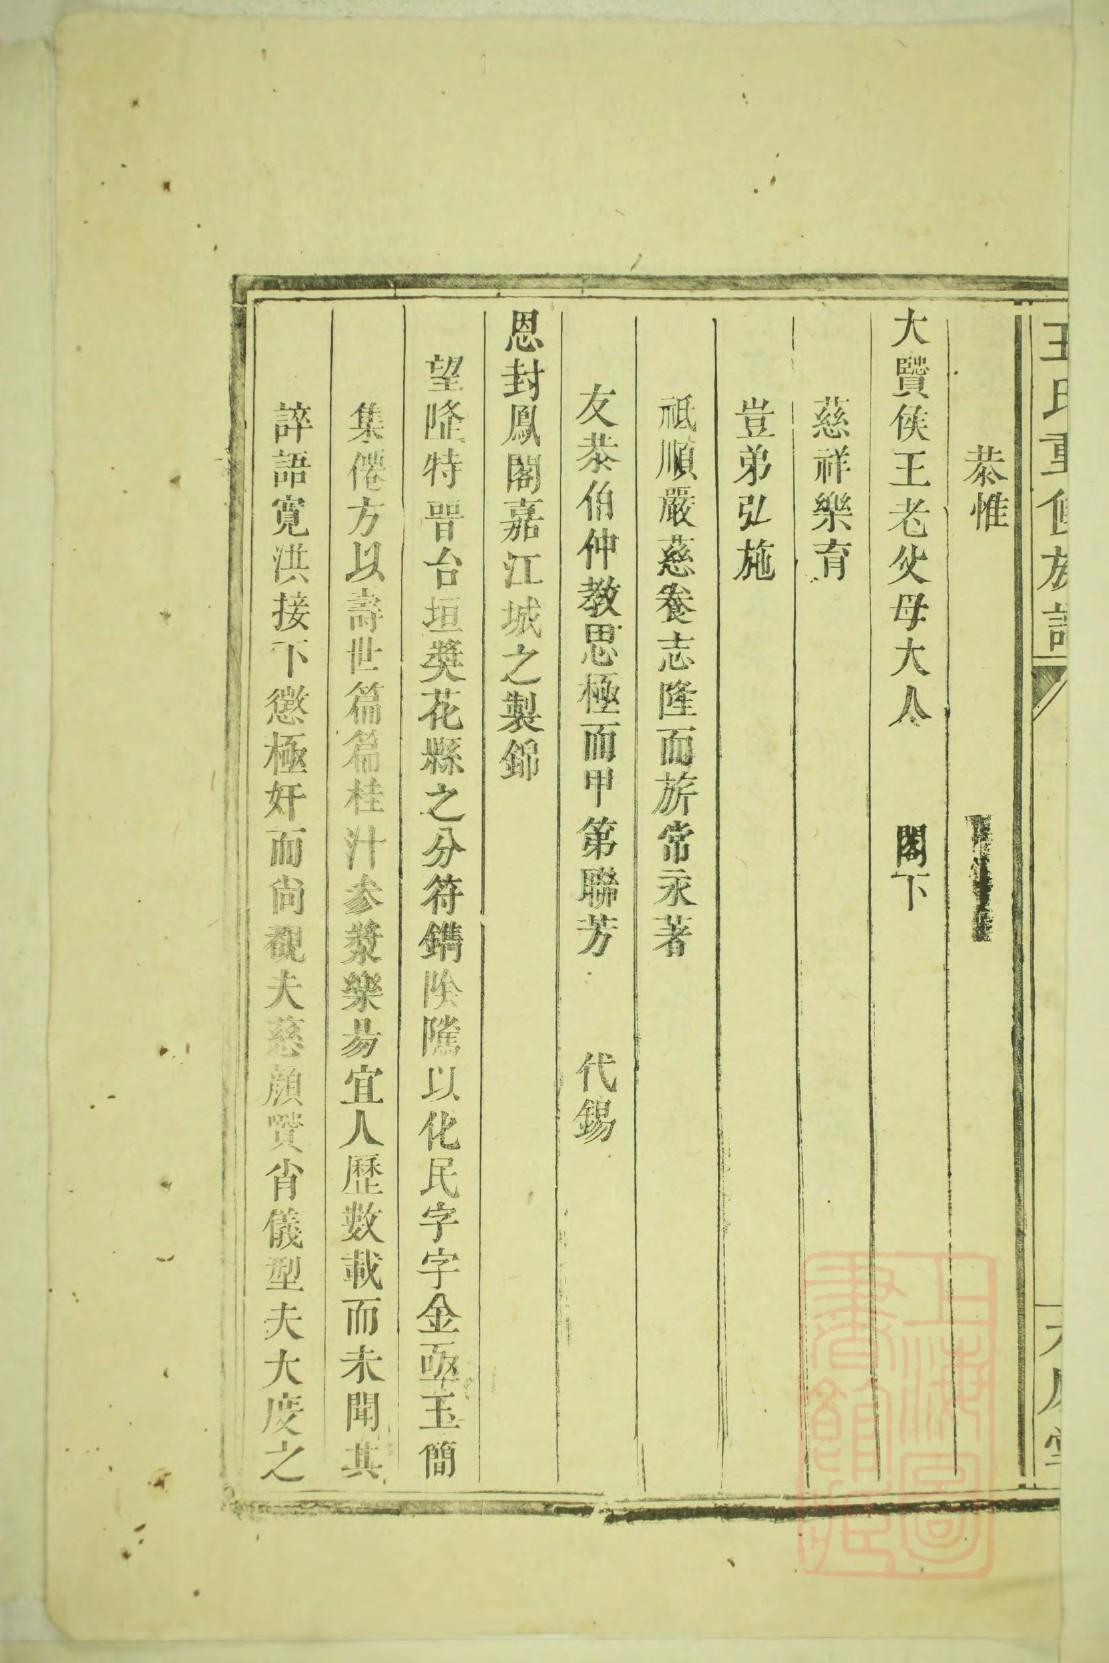 王氏重修族譜
恭惟
大賢侯王老父母大人 閣下
慈祥樂育
豈弟弘施
祗順嚴慈養志隆而旂常永著
友恭伯仲教思極而甲第聯芳 代錫
恩封鳳閣嘉江城之製錦
望隆特晋台垣奬花縣之分符鐫陰隲以化民字字金函玉簡
集僊方以壽世篇篇桂汁参漿樂易宜人歷數載而未聞其
誶語寬洪接下懲極奸而尚覩夫慈顔賢肖儀型夫大度之
上海圖書館藏